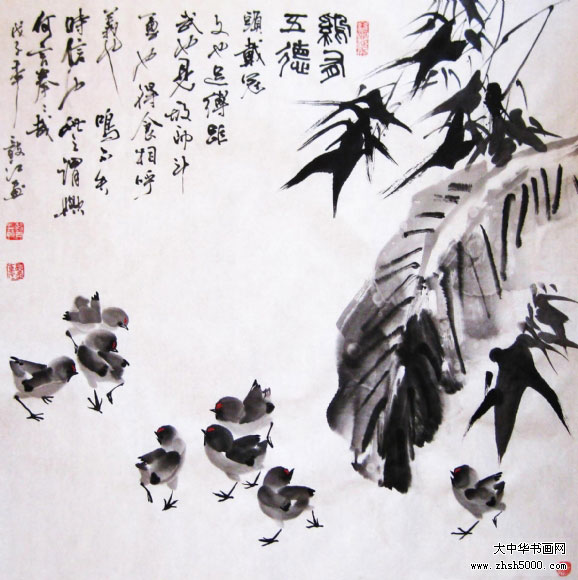 鷄有
五德
頭戴冠
文也足傅距
武也見敌而斗
勇也得食相呼
義也 鳴不失
時信也此之謂
何言
戊子年
大中华书画网
www.zhsh5000.com